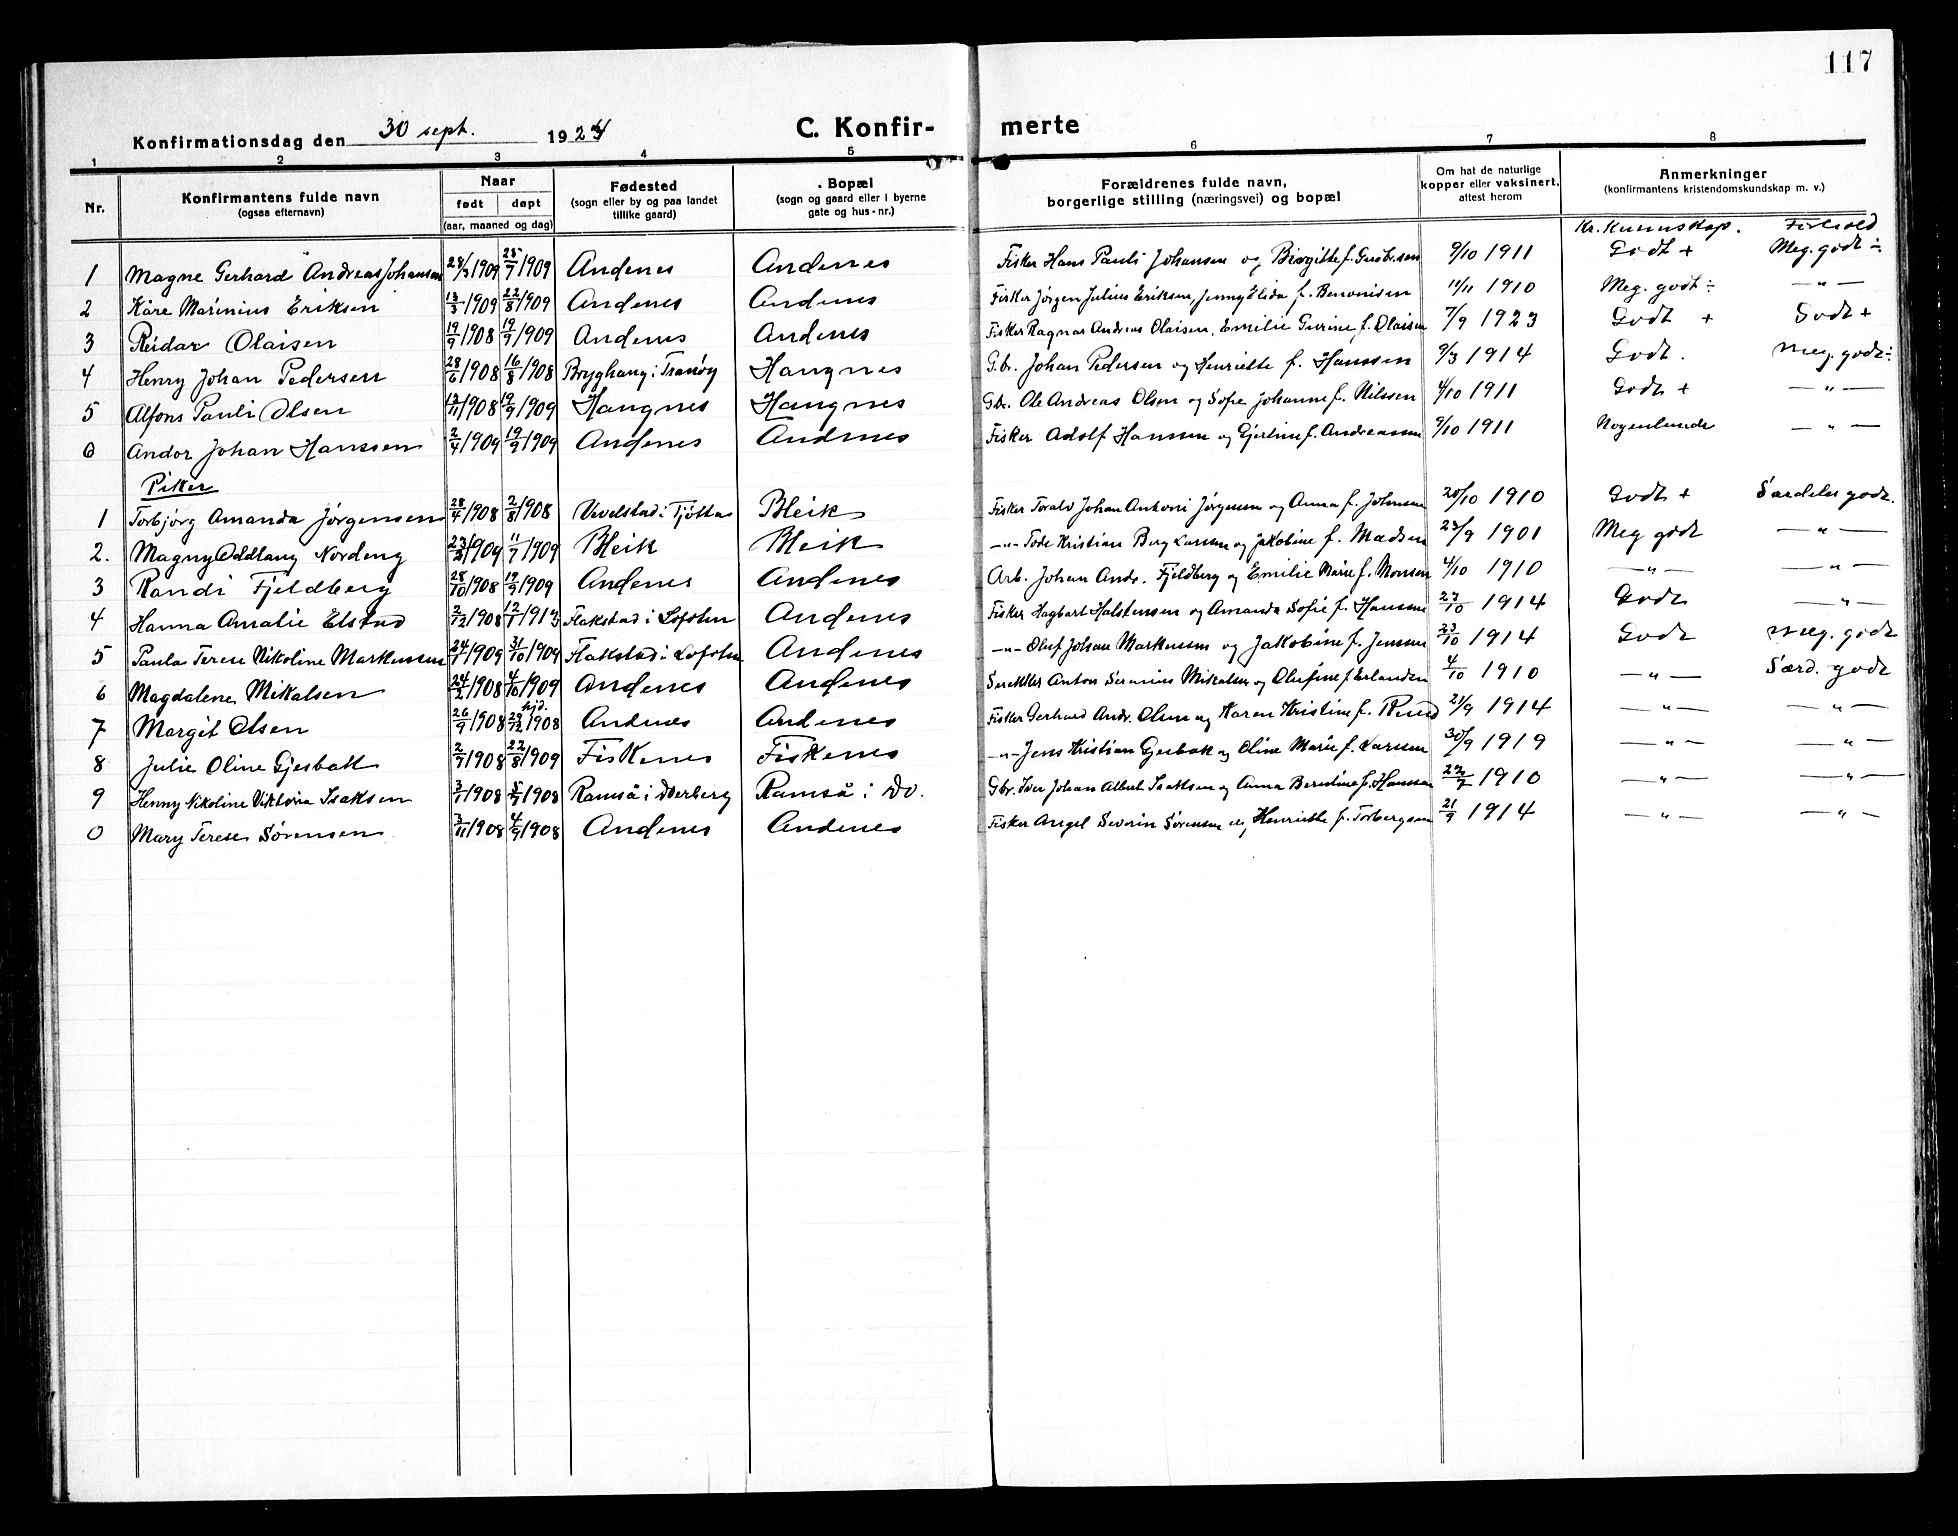 117
Konfirmationsdag den 30 sept. 1924 C. Konfir- merte
1 2 3 4 5 6 7 8
Nr. Konfirmantens fulde navn (ogsaa efternavn) Naar født døpt (aar, maaned og dag) Fødested (sogn eller by og paa landet tillike gaard) Bopæl (sogn og gaard eller i byerne gate og hus-nr.) Forældrenes fulde navn, borgerlige stilling (næringsvei) og bopæl Om hat de naturlige kopper eller vaksinert, attest herom Anmerkninger (konfirmantens kristendomskundskap m. v.)
Kr. Kunnskap. Forhold
1 Magne Gerhard Andreas Johansen 28/3 1909 25/7 1909 Andenes Andenes Fisker Hans Pauli Johansen og Birgitte f. 9/10 1911 Godt + Meg. godt ÷
2 Kåre Marinius Eriksen 13/3 1909 22/8 1909 Andenes Andenes Fisker Jørgen Julius Eriksen, Jenny Elida f. Benonisen 11/11 1910 Meg. godt ÷ —〃—
3 Reidar Olaisen 19/9 1908 19/9 1909 Andenes Andenes Fisker Ragnar Andreas Olaisen, Emilie Gurine f. Olaisen 7/9 1923 Godt + Godt +
4 Henry Johan Pedersen 28/6 1908 16/8 1908 Bryghaug i Tranøy Haugnes G.br. Johan Pedersen og Henriette f. Hanssen 9/3 1914 Godt. Meg. godt ÷
5 Alfons Pauli Olsen 12/11 1908 19/9 1909 Haugnes Haugnes Gbr. Ole Andreas Olsen og Sofie Johanne f. Nilssen 4/10 1911 Godt + —〃—
6 Andor Johan Hanssen 2/4 1909 19/9 1909 Andenes Andenes Fisker Adolf Hanssen og Gjertine f. Andreassen 9/10 1911 Nogenlunde —〃—
Piker
1 Torbjörg Amanda Jørgensen 28/4 1908 2/8 1908 Vevelstad i Tjötta Bleik Fisker Toralv Johan Antoni Jørgensen og Anna f. Johnsen 20/10 1910 Godt + Særdeles godt.
2. Magny Oddlaug Nordeng 23/2 1909 11/7 1909 Bleik Bleik —〃— Tode Kristian Berg Larsen og Jakobine f. Madsen 23/9 1901 Meg godt —〃—
3 Randi Fjeldberg 28/10 1908 19/9 1909 Andenes Andenes Arb. Johan Andr. Fjeldberg og Emilie Marie f. Monsen 4/10 1910 —〃— —〃—
4 Hanna Amalie Elstad 2/12 1908 12/1 1913 Flakstad i Lofoten Andenes Fisker Hagbart Halstensen og Amanda Sofie f. Hansen 23/10 1914 Godt —〃—
5 Paula Terese Nikoline Markussen 24/7 1909 31/10 1909 Flakstad i Lofoten Andenes —〃— Oluf Johan Markussen og Jakobine f. Jensen 23/10 1914 Godt Meg. godt
6 Magdalene Mikalsen 24/2 1908 4/10 1909 Andenes Andenes Anton Serenius Mikalsen og Olufine f Erlandsen 4/10 1910 —〃— Særd. godt
7 Margit Olsen 26/9 1908 hjd. 29/12 1908 Andenes Andenes Fisker Gerhard Andr. Olsen og Karen Kristine f. Ruud 21/9 1914 —〃— —〃—
8 Julie Oline Gjesbakk 2/7 1908 22/8 1909 Fiskenes Fiskenes —〃— Jens Kristian Gjesbakk og Oline Marie f. Larsen 30/9 1919 —〃— —〃—
9 Henny Nikoline Viktoria Isaksen 3/1 1908 5/7 1908 Ramså i Dverberg Ramså i Dv. Gbr. Iver Johan Albert Isaksen og Anna Berntine f. Hansen 22/7 1910 —〃— —〃—
0 Mary Terese Sørensen 3/11 1908 4/9 1908 Andenes Andenes Fisker Angel Severin Sørensen og Henriette f. Torbergsen 21/9 1914 —〃— —〃—